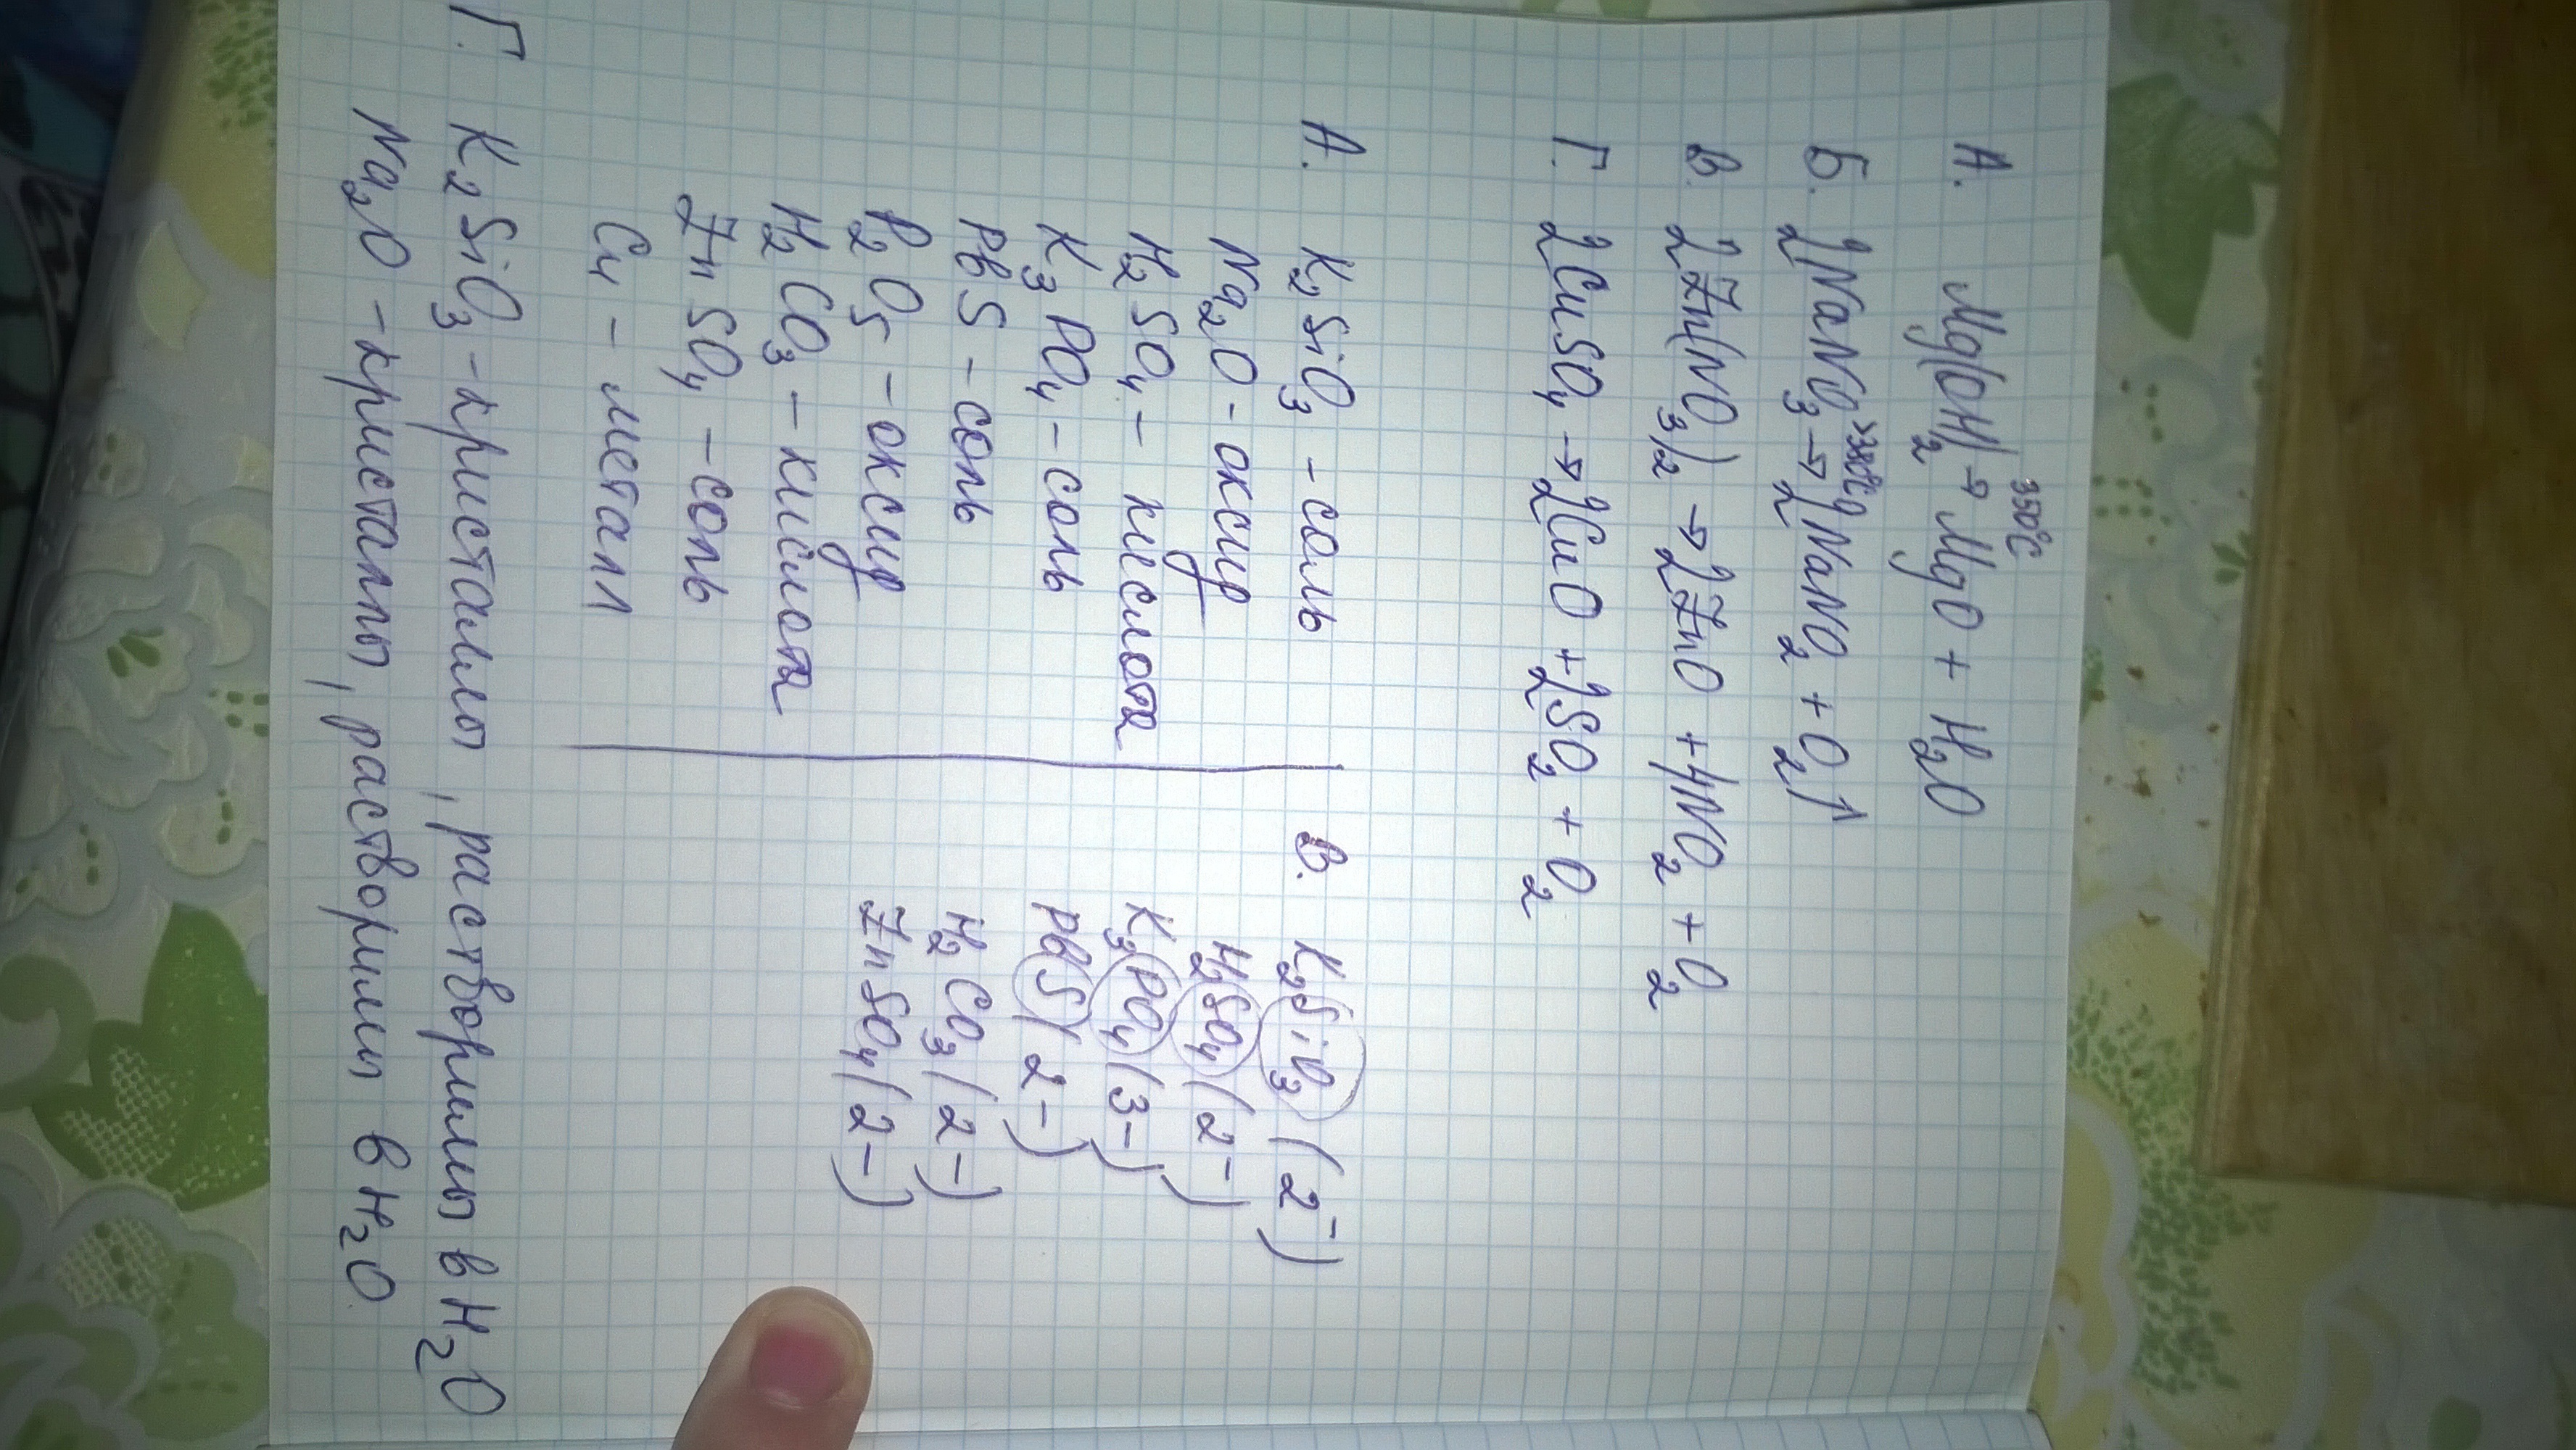 А. Mg(OH)₂ →³⁵⁰°ᶜ MgO + H₂O
Б. 2NaNO₃ →^>380°C 2NaNO₂ + O₂↑
В. 2Zn(NO₃)₂ → 2ZnO + 4NO₂ + O₂
Г. 2CuSO₄ → 2CuO + 2SO₂ + O₂
А. K₂SiO₃ - соль
Na₂O - оксид
H₂SO₄ - кислота
K₃PO₄ - соль
PbS - соль
P₂O₅ - оксид
H₂CO₃ - кислота
ZnSO₄ - соль
Cu - метал
В. K₂SiO₃ (2-)
H₂SO₄ (2-)
K₃PO₄ (3-)
PbS (2-)
H₂CO₃ (2-)
ZnSO₄ (2-)
Г. K₂SiO₃ - кристаллы, растворимы в H₂O
Na₂O - кристаллы, растворимы в H₂O